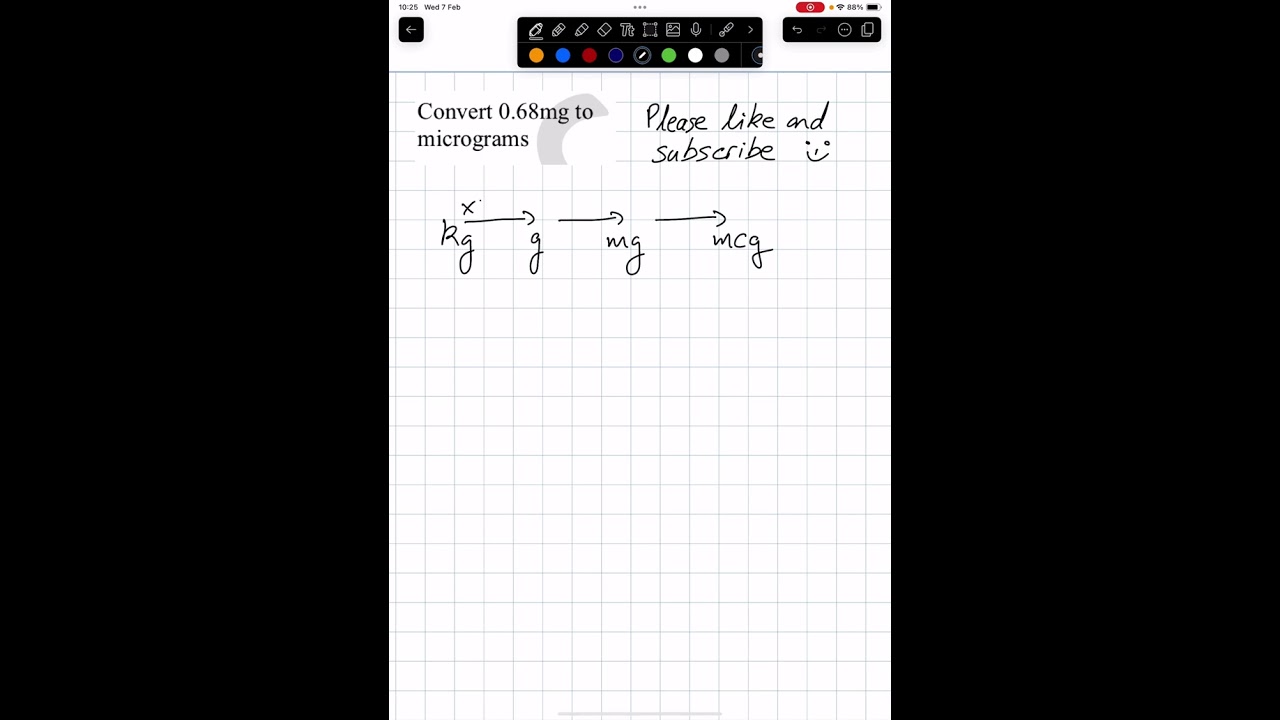 10:25 Wed 7 Feb
88%
Tt
Convert 0.68mg to
micrograms
Please like and
subscribe
x
kg g mg mcg